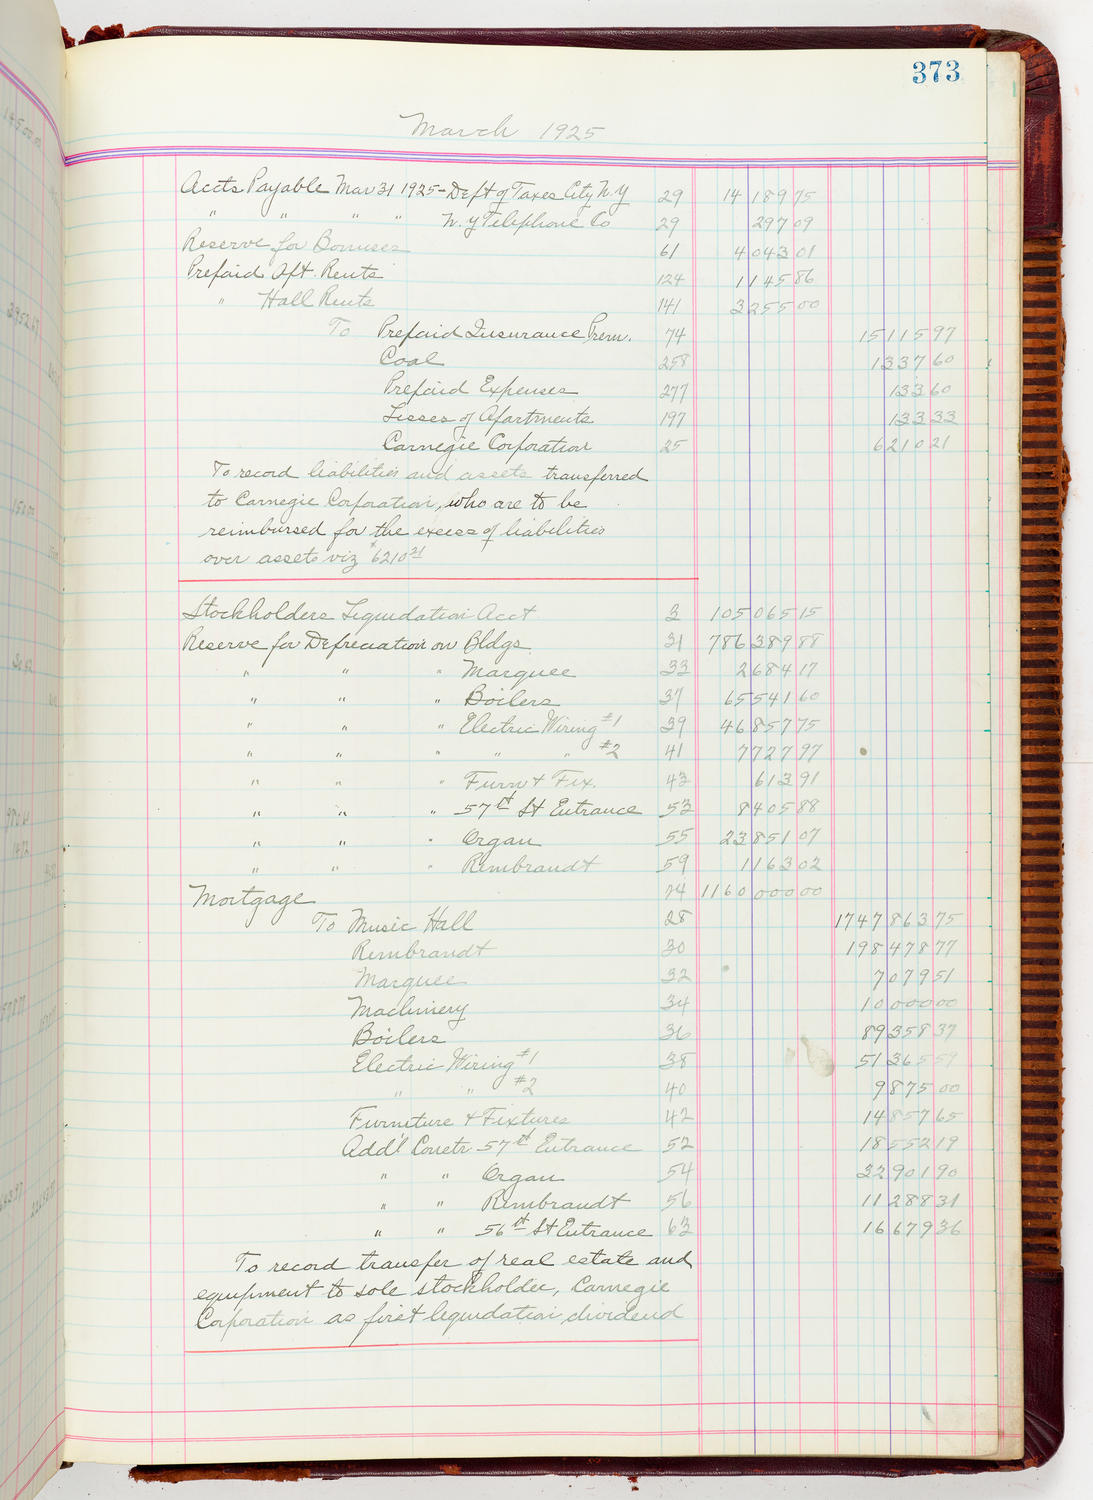 373
March 1925
Accts Payable Mar 31 1925 - Dept of Taxes City N Y 29 14 189 75
" " " " N.Y Telephone Co 29 297 09
Reserve for Bonuses 61 4 043 01
Prepaid Apt. Rents 124 1 145 86
" Hall Rents 141 3 255 00
To Prepaid Insurance Prem. 74 15 115 97
Coal 258 1 337 60
Prepaid Expenses 277 133 60
Lesses of Apartments 197 133 33
Carnegie Corporation 25 6 210 21
To record liabilities and assets transferred
to Carnegie Corporation, who are to be
reimbursed for the excess of liabilities
over assets viz $6210 21
Stockholders Liquidation Acct 3 105 065 15
Reserve for Depreciation on Bldgs. 31 786 389 88
" " " Marquee 33 2 684 17
" " " Boilers 37 65 541 60
" " " Electric Wiring #1 39 46 857 75
" " " " " #2 41 7 727 97
" " " Furn & Fix. 43 613 91
" " " 57th St Entrance 53 8 405 88
" " " Organ 55 23 851 07
" " " Rembrandt 59 1 163 02
Mortgage 74 1160 000 00
To Music Hall 28 1747 863 75
Rembrandt 30 198 478 77
Marquee 32 7 079 51
Machinery 34 10 000 00
Boilers 36 89 358 37
Electric Wiring #1 38 51 365 59
" " #2 40 9 875 00
Furniture & Fixtures 42 14 857 65
Add'l Constr. 57th Entrance 52 18 552 19
" " Organ 54 32 901 90
" " Rembrandt 56 11 288 31
" " 56th St Entrance 63 16 679 36
To record transfer of real estate and
equipment to sole stockholder, Carnegie
Corporation as first liquidation dividend